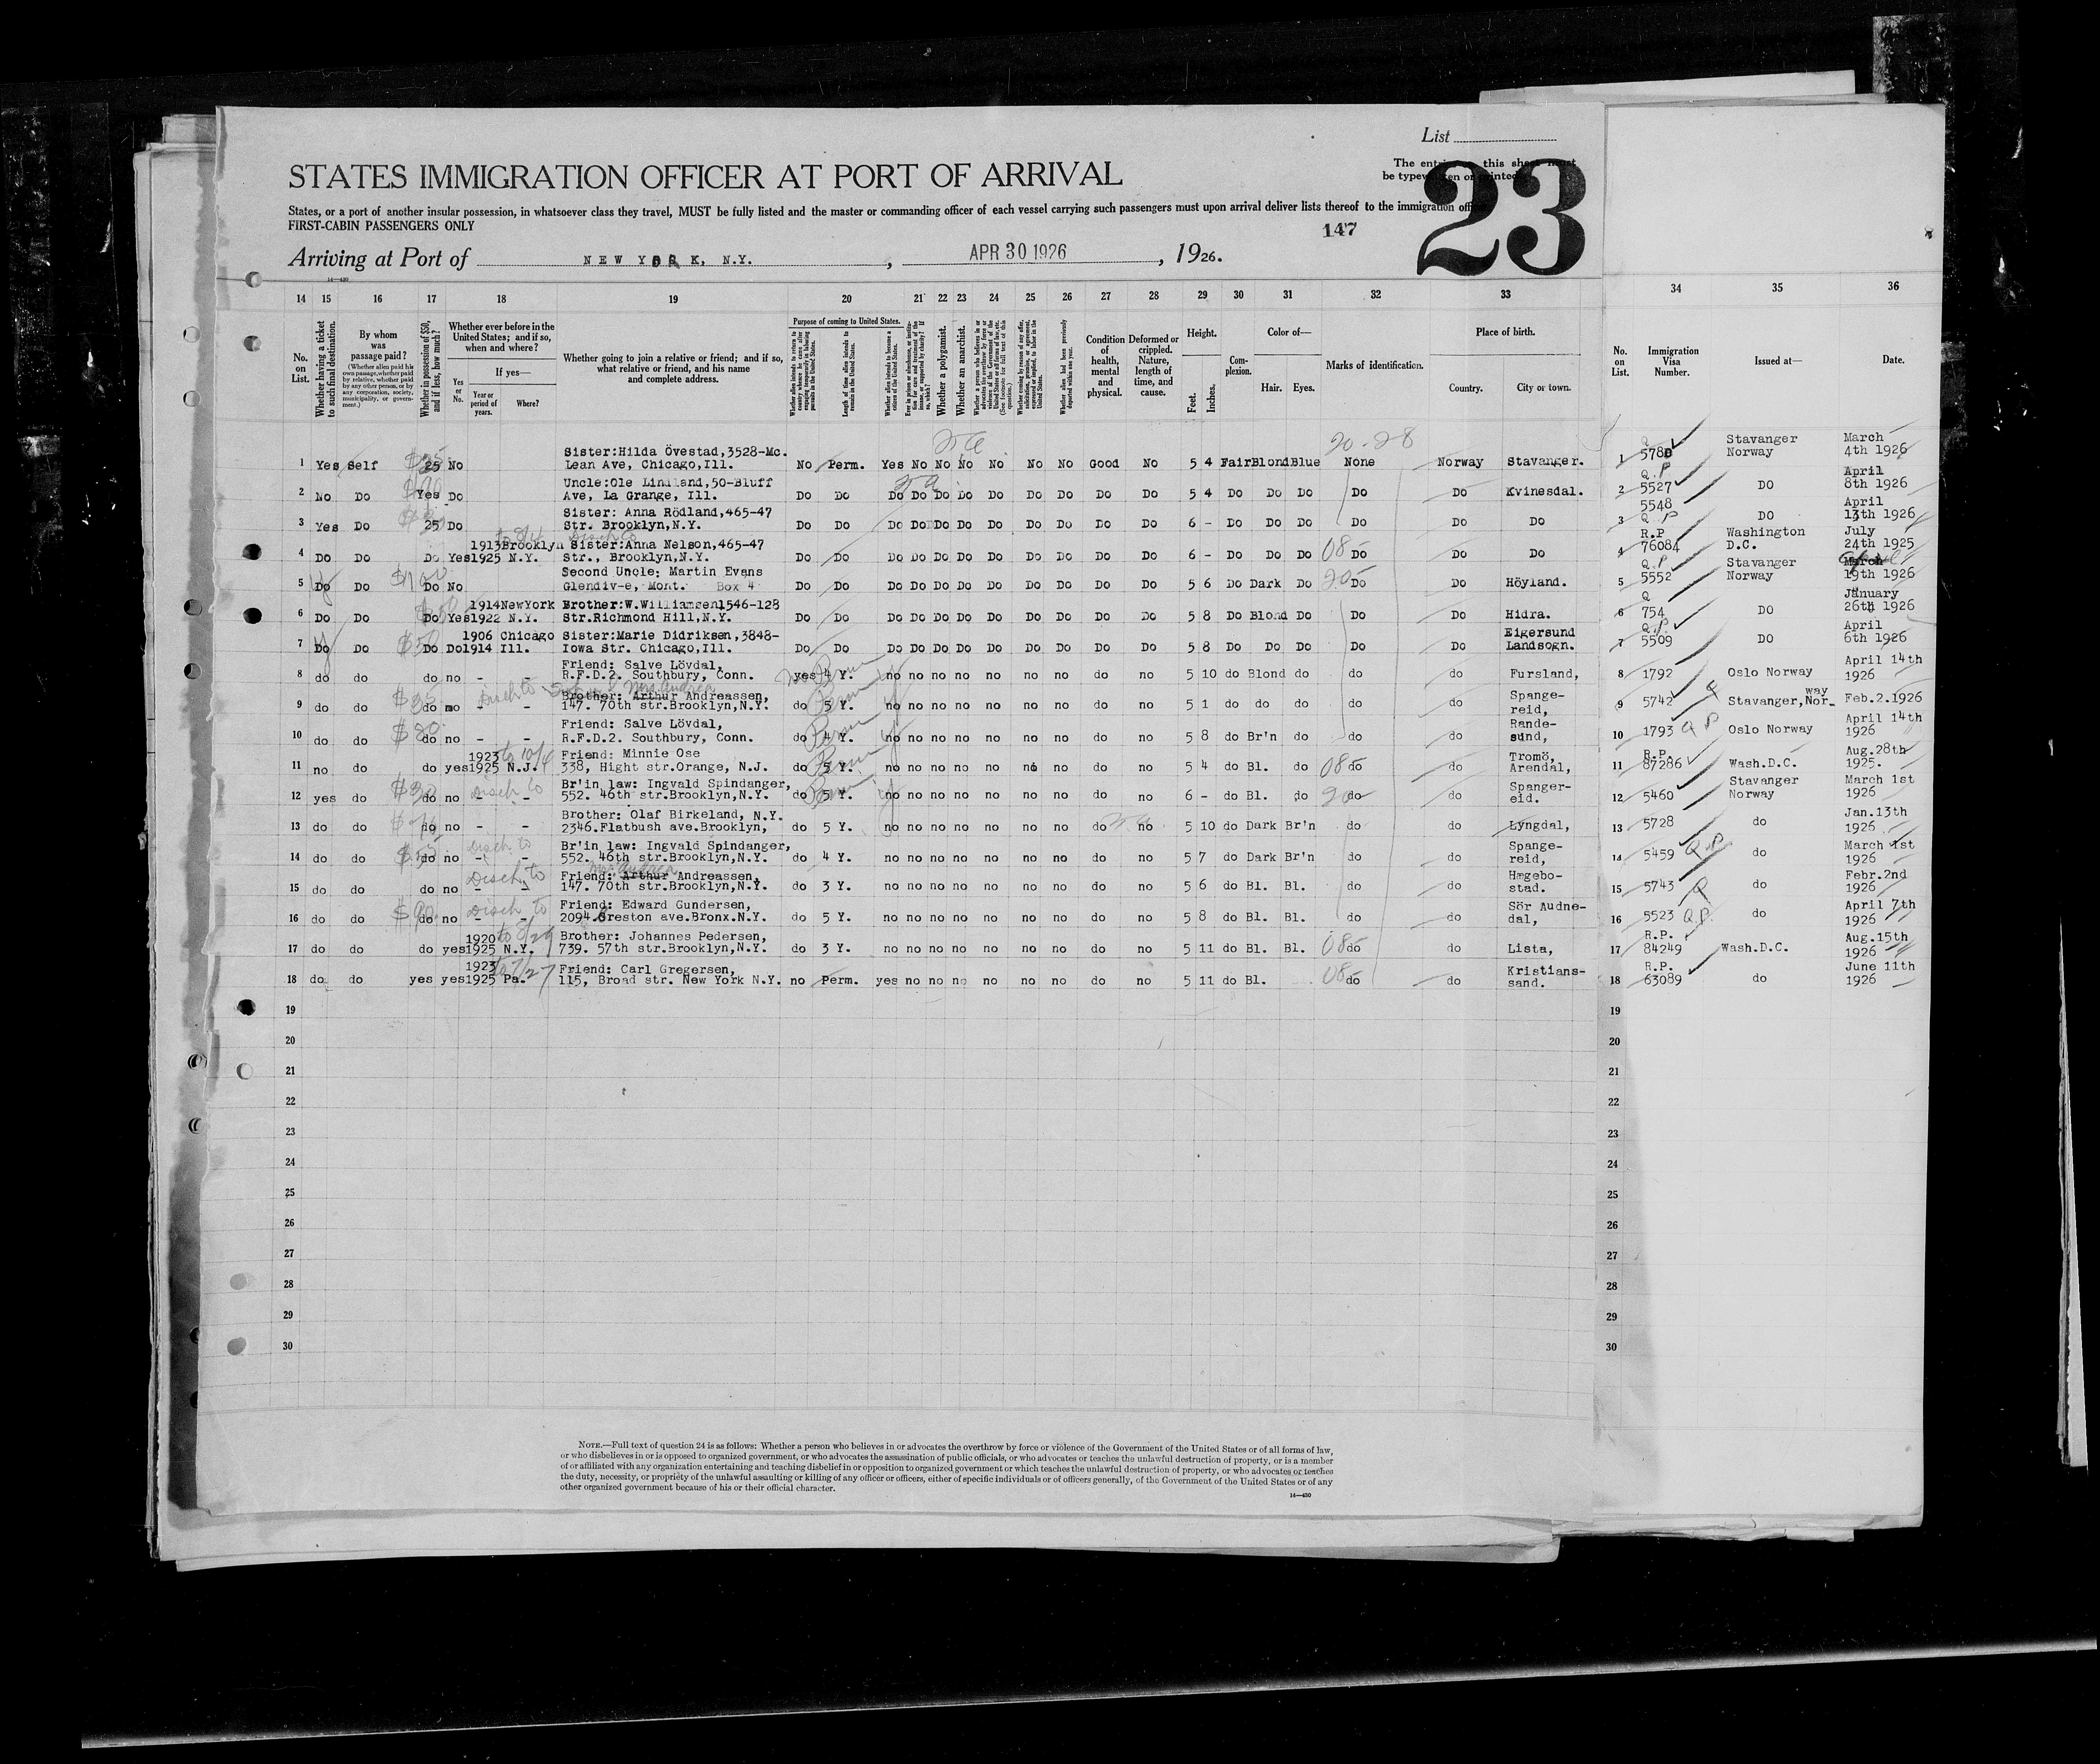 List
STATES IMMIGRATION OFFICER AT PORT OF ARRIVAL
The entries on this sheet must
be typewritten or printed
23
States, or a port of another insular possession, in whatsoever class they travel, MUST be fully listed and the master or commanding officer of each vessel carrying such passengers must upon arrival deliver lists thereof to the immigration
FIRST-CABIN PASSENGERS ONLY
147
Arriving at Port of NEW YORK, N.Y., APR 30 1926, 1926.
14—430
14 15 16 17 18 19 20 21 22 23 24 25 26 27 28 29 30 31 32 33 34 35 36
No. on List.
Whether having a ticket to such final destination.
By whom was passage paid?
(Whether alien paid his own passage, whether paid by relative, whether paid by any other person, or by any corporation, society, municipality, or government.)
Whether in possession of $50, and if less, how much?
Whether ever before in the United States; and if so, when and where?
Yes or No.
If yes—
Year or period of years.
Where?
Whether going to join a relative or friend; and if so, what relative or friend, and his name and complete address.
Purpose of coming to United States.
Length of time alien intends to remain in the United States.
Whether alien intends to become a citizen of the United States.
Whether a polygamist.
Whether an anarchist.
Condition of health, mental and physical.
Deformed or crippled. Nature, length of time, and cause.
Height.
Feet.
Inches.
Complexion.
Color of—
Hair.
Eyes.
Marks of identification.
Place of birth.
Country.
City or town.
No. on List.
Immigration Visa Number.
Issued at—
Date.
20-28
Sister:Hilda Övestad,3528-Mc. Stavanger March
1 Yes Self 25 No Lean Ave, Chicago,Ill. No Perm. Yes No No No No No No Good No 5 4 Fair Blond Blue None Norway Stavanger. 1 5780 Norway 4th 1926
Uncle:Ole Lindland,50-Bluff Q.P April
2 No Do Yes Do Ave, La Grange, Ill. Do Do Do Do Do Do Do Do Do Do Do 5 4 Do Do Do Do Do Kvinesdal. 2 5527 DO 8th 1926
Sister: Anna Rödland,465-47 5548 April
3 Yes Do 25 Do Str. Brooklyn,N.Y. Do Do Do Do Do Do Do Do Do Do Do 6 - Do Do Do Do Do Do 3 Q P DO 13th 1926
1913 Brooklyn Sister:Anna Nelson,465-47 R.P Washington July
4 Do Do Do Yes 1925 N.Y. Str., Brooklyn,N.Y. Do Do Do Do Do Do Do Do Do Do Do 6 - Do Do Do 08 Do Do Do 4 76084 D.C. 24th 1925
Second Uncle: Martin Evans Q.P Stavanger March
5 Do Do $100 Do No Glendiv-e, Mont. Box 4 Do Do Do Do Do Do Do Do Do Do Do 5 6 Do Dark Do 20 Do Do Höyland. 5 5552 Norway 19th 1926
1914 NewYork Brother:W.Williamsen1546-128 Q January
6 Do Do Do Yes 1922 N.Y. Str.Richmond Hill,N.Y. Do Do Do Do Do Do Do Do Do Do Do 5 8 Do Blond Do Do Do Hidra. 6 754 DO 26th 1926
1906 Chicago Sister:Marie Didriksen,3848- Eigersund Q.P. April
7 Do Do $50 Do Do 1914 Ill. Iowa Str. Chicago,Ill. Do Do Do Do Do Do Do Do Do Do Do 5 8 Do Do Do Do Do Landsogn. 7 5509 DO 6th 1926
Friend: Salve Lövdal, April 14th
8 do do do no - - R.F.D.2. Southbury, Conn. yes 4 Y. Perm no no no no no no no do no 5 10 do Blond do do do Fursland, 8 1792 Oslo Norway 1926
Disch to Mrs. Andrea
Brother: Arthur Andreassen, Spange- way
9 do do $35 do no - - 147. 70th str.Brooklyn,N.Y. do 5 Y. Perm no no no no no no no do no 5 1 do do do do do reid, 9 5742 Stavanger,Nor_ Feb.2.1926
Friend: Salve Lövdal. Rande- April 14th
10 do do $80 do no - - R.F.D.2. Southbury, Conn. do 4 Y. Perm no no no no no no no do no 5 8 do Br'n do do do sund, 10 1793 Q P Oslo Norway 1926
1923 to 10/4 Friend: Minnie Ose Tromö, R.P. Aug.28th
11 no do do yes 1925 N.J. 338, Hight str.Orange, N.J. do 5 Y. Perm no no no no no no no do no 5 4 do Bl. do 08 do do Arendal, 11 87286 Wash.D.C. 1925.
Disch to Br'in law: Ingvald Spindanger, Spanger- Stavanger March 1st
12 yes do do no - - 552. 46th str.Brooklyn,N.Y. do 5 Y. Perm no no no no no no no do no 6 - do Bl. do 20 do do eid. 12 5460 Norway 1926
Brother: Olaf Birkeland, N.Y. Jan.13th
13 do do do no - - 2346.Flatbush ave.Brooklyn, do 5 Y. no no no no no no no do no 5 10 do Dark Br'n do do Lyngdal, 13 5728 do 1926
Disch to Br'in law: Ingvald Spindanger, Spange- March 1st
14 do do do no - - 552. 46th str.Brooklyn,N.Y. do 4 Y. no no no no no no no do no 5 7 do Dark Br'n do do reid, 14 5459 Q.P. do 1926
Disch to Mrs. Andrea
Friend: Arthur Andreassen, Hægebo- Febr.2nd
15 do do do no - - 147. 70th str.Brooklyn,N.Y. do 3 Y. no no no no no no no do no 5 6 do Bl. Bl. do do stad. 15 5743 Q do 1926
Disch to Friend: Edward Gundersen, Sör Audne- April 7th
16 do do $90 do no - - 2094.Creston ave.Bronx.N.Y. do 5 Y. no no no no no no no do no 5 8 do Bl. Bl. do do dal, 16 5523 Q.P. do 1926
1920 to 8/29 Brother: Johannes Pedersen, R.P. Aug.15th
17 do do do yes 1925 N.Y. 739. 57th str.Brooklyn,N.Y. do 3 Y. no no no no no no no do no 5 11 do Bl. Bl. 08 do do Lista, 17 84249 Wash.D.C. 1926
1923 to 7/27 Friend: Carl Gregersen, Kristians- R.P. June 11th
18 do do yes yes 1925 Pa. 115, Broad str. New York N.Y. no Perm. yes no no no no no no do no 5 11 do Bl. 08 do do sand. 18 63089 do 1926
19 19
20 20
21 21
22 22
23 23
24 24
25 25
26 26
27 27
28 28
29 29
30 30
NOTE.—Full text of question 24 is as follows: Whether a person who believes in or advocates the overthrow by force or violence of the Government of the United States or of all forms of law,
or who disbelieves in or is opposed to organized government, or who advocates the assassination of public officials, or who advocates or teaches the unlawful destruction of property, or is a member
of or affiliated with any organization entertaining and teaching disbelief in or opposition to organized government or which teaches the unlawful destruction of property, or who advocates or teaches
the duty, necessity, or propriety of the unlawful assaulting or killing of any officer or officers, either of specific individuals or of officers generally, of the Government of the United States or of any
other organized government because of his or their official character.
14—430